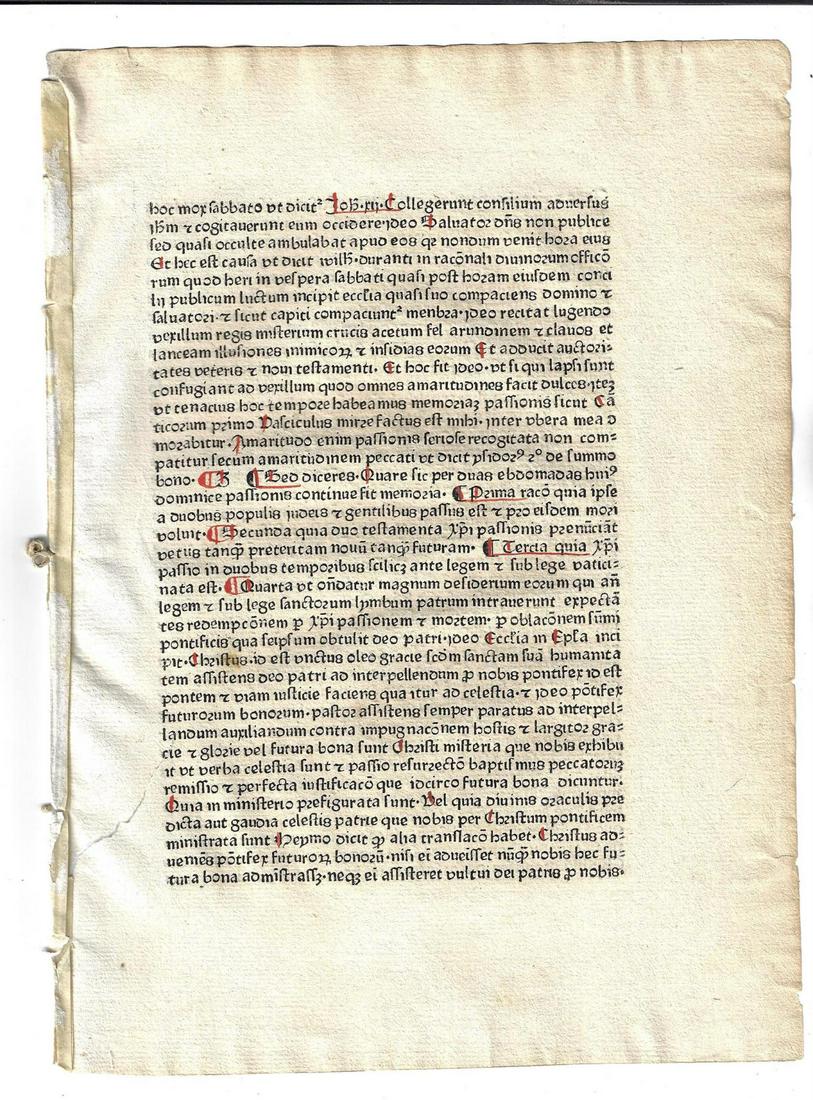 hoc mox sabbato vt dicitᷣ Joh̄·xij·Collegerunt consilium aduersus
ih̄m ⁊ cogitauerunt eum occidere·ideo Saluator dn̄s non publice
sed quasi occulte ambulabat apud eos qꝛ nondum venit hora eius
Et hec est causa vt dicit wilh̄·duranti in racōnali diuinorum officō
rum quod heri in vespera sabbati quasi post horam eiusdem conci
lij publicum luctum incipit eccl̄ia quasi suo compaciens domino ⁊
saluatori·⁊ sicut capiti compaciuntᷣ menbra·ideo recitat lugendo
vexillum regis misterium crucis acetum fel arundinem ⁊ clauos et
lanceam illusiones inimicoꝝ ⁊ insidias eorum Et adducit auctori⸗
tates veteris ⁊ noui testamenti· Et hoc fit ideo·vt si qui lapsi sunt
confugiant ad vexillum quod omnes amaritudines facit dulces·iteꝫ
vt tenacius hoc tempore habeamus memoriaꝫ passionis sicut Cā
ticorum primo Fasciculus mirre factus est mihi·inter vbera mea ꝺ
morabitur·Amaritudo enim passionis seriose recogitata non com⸗
patitur secum amaritudinem peccati vt dicit ysidorꝰ 2º de summo
bono· ¶ Sed diceres·Quare sic per duas ebdomadas huiꝰ
dominice passionis continue fit memoria· ¶ Prima racō quia ipse
a duobus populis iudeis ⁊ gentilibus passus est ⁊ pro eisdem mori
voluit·¶Secunda quia duo testamenta Xp̄i passionis prenūciāt
vetus tanꝙ̄ preteritam nouū tanꝙ̄ futuram· ¶ Tercia quia Xp̄i
passio in duobus temporibus scilicꝫ ante legem ⁊ sub lege vatici⸗
nata est·¶Quarta vt on̄datur magnum desiderium eorum qui an̄
legem ⁊ sub lege sanctorum lymbum patrum intrauerunt expectā
tes redempcōnem ꝑ Xp̄i passionem ⁊ mortem· ꝑ oblacōnem sūmi
pontificis qua seipsum obtulit deo patri·ideo Eccl̄ia in Epl̄a inci
pit·Christus·id est vnctus oleo gracie scd̄m sanctam suā humanita
tem assistens deo patri ad interpellendum ꝓ nobis pontifex id est
pontem ⁊ viam iusticie faciens qua itur ad celestia·⁊ ideo pōtifex
futurorum bonorum·pastor assistens semper paratus ad interpel⸗
landum auxiliandum contra impugnacōnem hostis ⁊ largitor gra⸗
cie ⁊ glorie vel futura bona sunt Christi misteria que nobis exhibu
it vt verba celestia sunt ⁊ passio resurrectō baptismus peccatoruꝫ
remissio ⁊ perfecta iustificacō que idcirco futura bona dicuntur·
Quia in ministerio prefigurata sunt·Vel quia diuinis oraculis pre
dicta aut gaudia celestis patrie que nobis per Christum pontificem
ministrata sunt Heymo dicit ꝙ alia translacō habet·Christus ad⸗
ueniēs pōtifex futuroꝝ bonorū·nisi ei adueisset nūꝙ̄ nobis hec fu⸗
tura bona admīstrassꝫ·neqꝫ ei assisteret vultui dei patris ꝓ nobis·